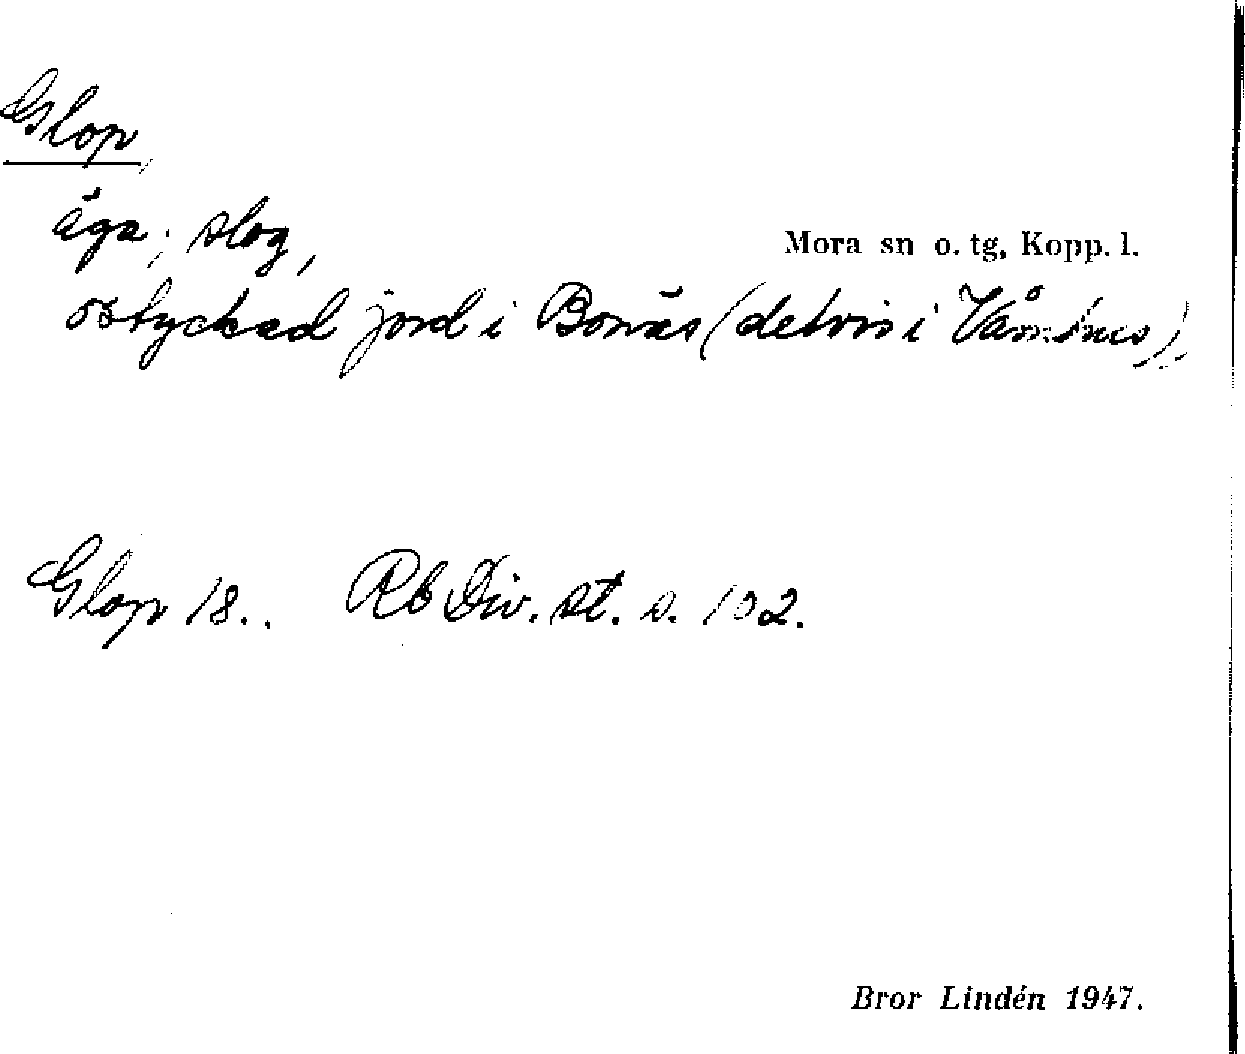 Glop
äga; slog,
Mora sn o. tg, Kopp. l.
ostyckad jord i Bonäs (delvis i Våmhus),
Glop 18.. Rb Div. st. s. 102.
Bror Lindén 1947.